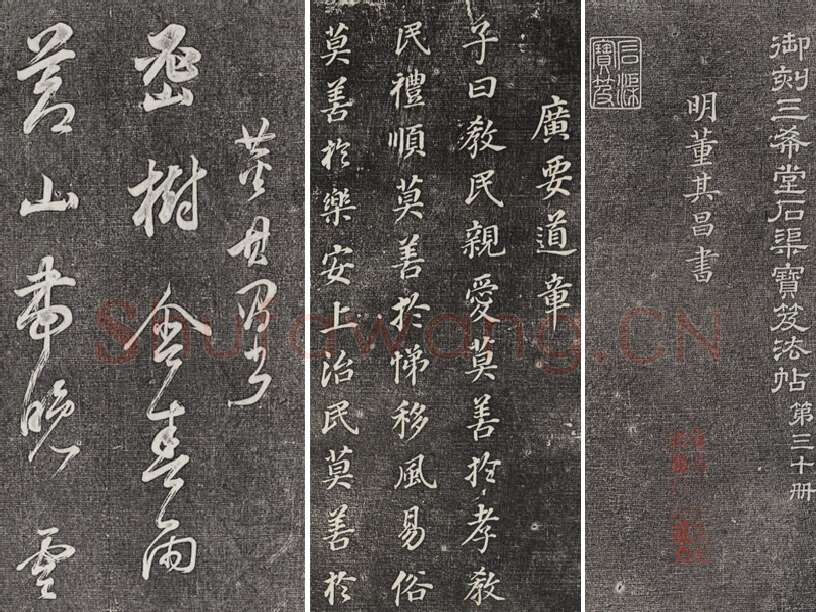 御刻三希堂石渠寶笈法帖 第三十冊
明董其昌書
石渠寶笈
廣要道章
子曰教民親愛莫善於孝教
民禮順莫善於悌移風易俗
莫善於樂安上治民莫善於
董其昌書
密樹含春雨
蒼山帶晚雲
Shufawang.CN